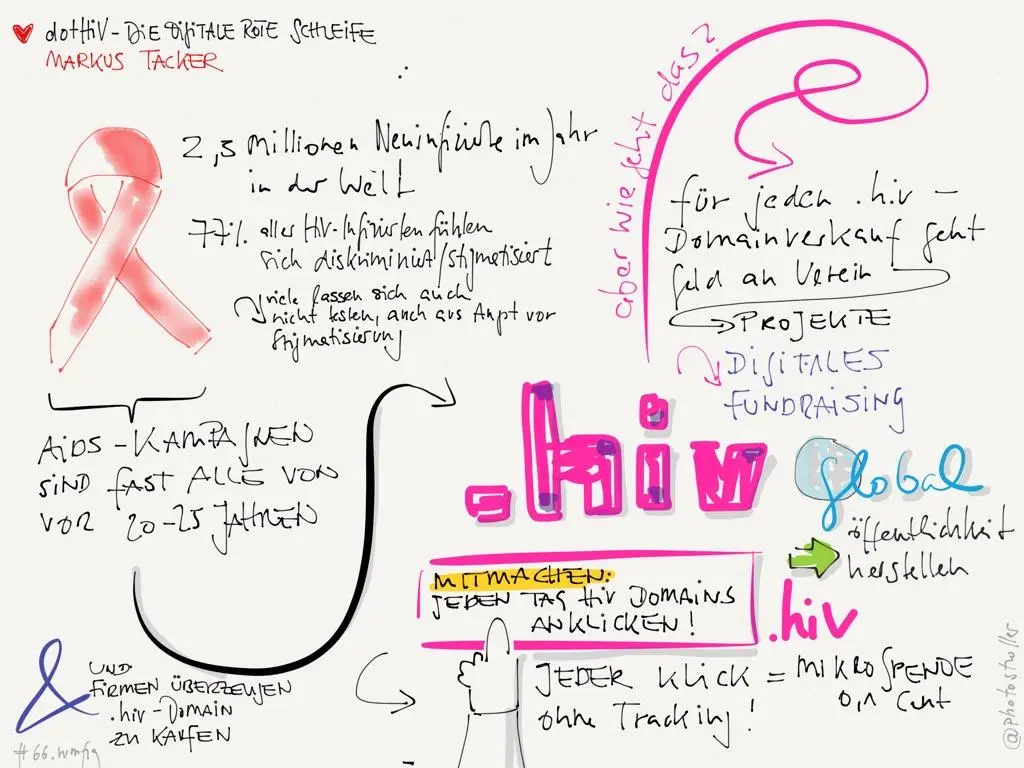 dotHIV - DIE DIGITALE ROTE SCHLEIFE
MARKUS TACKER
2,3 Millionen Neuinfizierte im Jahr
in der Welt
77% aller HIV-Infizierten fühlen
sich diskriminiert/stigmatisiert
viele lassen sich auch
nicht testen, auch aus Angst vor
Stigmatisierung
AIDS-KAMPAGNEN
SIND FAST ALLE VON
VOR 20-25 JAHREN
&
UND
FIRMEN ÜBERZEUGEN
.hiv-DOMAIN
ZU KAUFEN
#66.wmfra
aber wie geht das?
für jeden .hiv-
Domainverkauf geht
Geld an Verein
PROJEKTE
DIGITALES
FUNDRAISING
.hiv
global
öffentlichkeit
herstellen
MITMACHEN:
JEDEN TAG HIV DOMAINS
ANKLICKEN!
.hiv
JEDER KLICK = MIKROSPENDE
0,1 Cent
ohne Tracking!
@photostroller